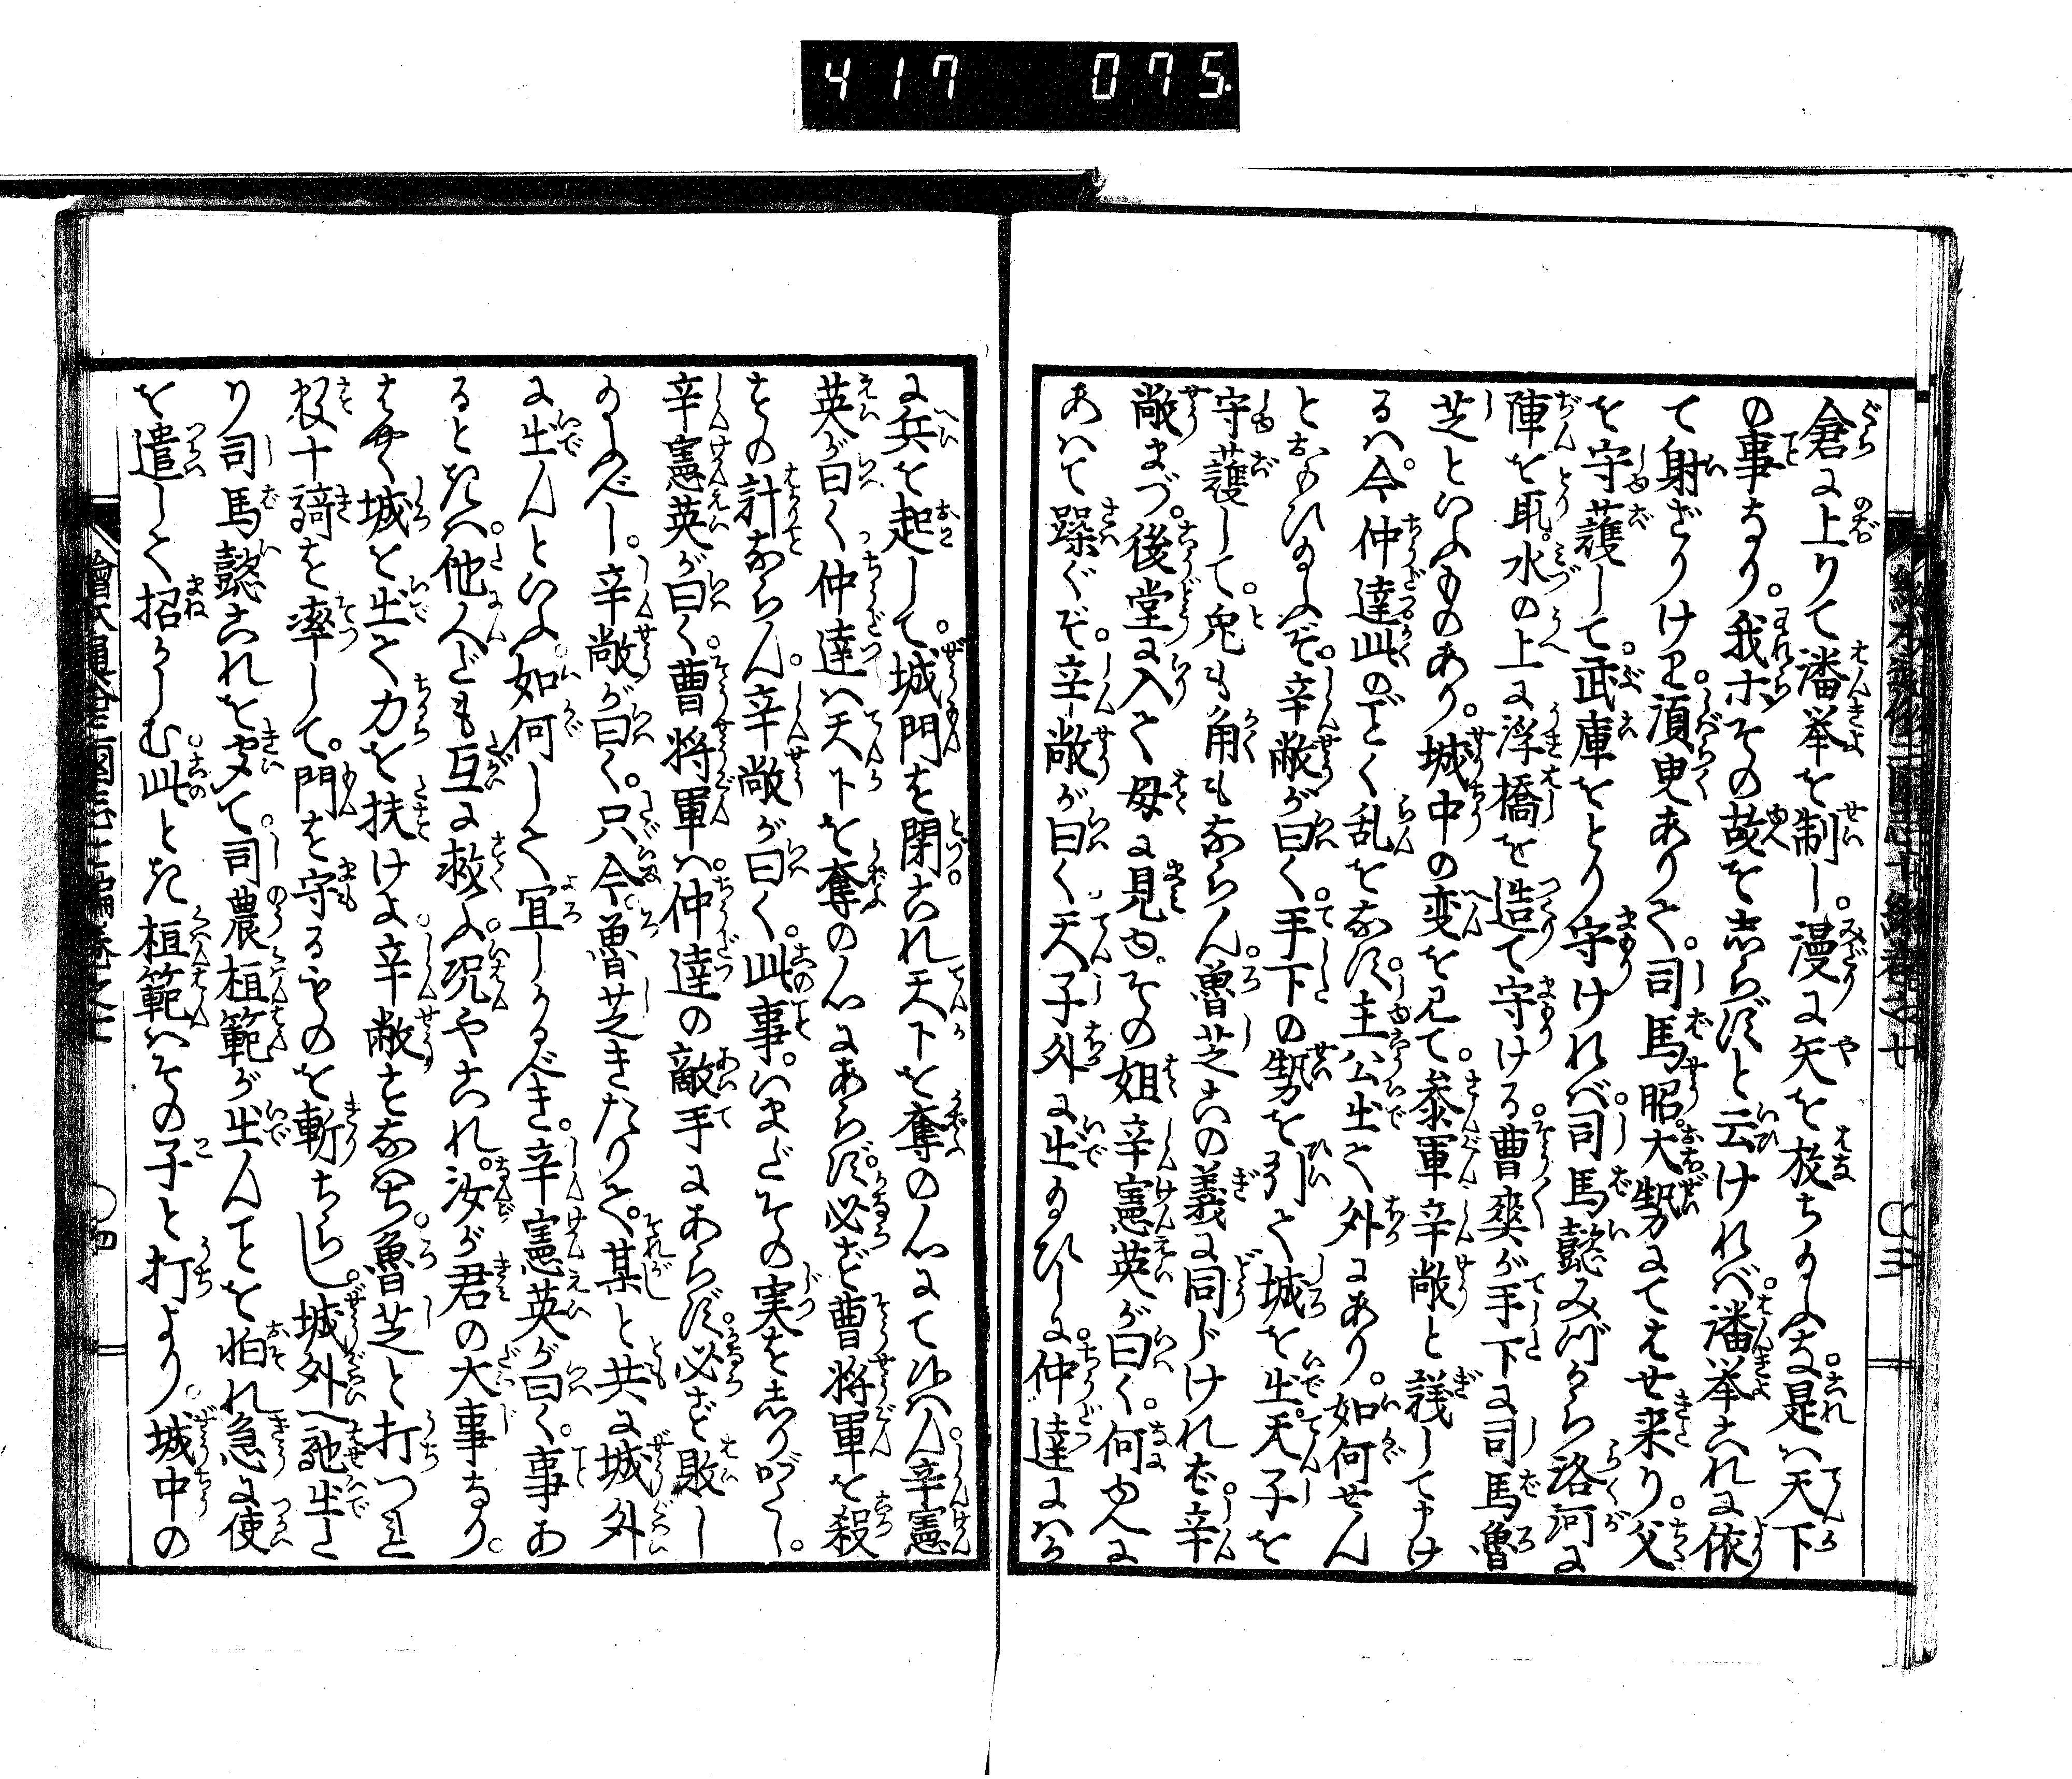 417 075
倉に上りて潘挙を制し。漫に矢を放ち給ふな。是ハ天下
の事なり。我ホその故をしらずと云けれバ。潘挙これに依
て射ざりけり。須臾ありて。司馬昭大勢にてはせ来り。父
を守護して。武庫をとり守けれバ。司馬懿みづから洛河に
陣を取。水の上に浮橋を造て守ける。曹爽が手下に司馬魯
芝といふものあり。城中の変を見て。参軍辛敞と議して申け
るハ。今仲達此のごとく乱をなす。主公出て外にあり。如何せん
とおもひ給ふぞ。辛敞が曰く。手下の勢を引て城を出。天子を
守護して。兎も角もならん。魯芝この義に同じければ。辛
敞まづ。後堂に入て母に見ゆ。その姐辛憲英が曰く。何ゆへに
あハて躁ぐぞ。辛敞が曰く。天子外に出給ひしに。仲達にハか
に兵を起して。城門を閉。これ天下を奪の心にて候ハん。辛憲
英が曰く。仲達ハ天下を奪の心にあらず。必ず曹将軍を殺
すの計ならん。辛敞が曰く。此事。いまだその実をしりがたし。
辛憲英が曰く。曹将軍ハ。仲達の敵手にあらず。必ず敗し
給ふべし。辛敞が曰く。只今魯芝きたりて。某と共に城外
に出んといふ。如何して宜しかるべき。辛憲英が曰く。事あ
るときハ。他人ども互に救ふ。况やこれ。汝が君の大事なり。
はやく城を出て力を扶けよ。辛敞すなハち。魯芝と打つれ
数十騎を率して。門を守るものを斬ちらし。城外へ馳出た
り。司馬懿これを聞て。司農桓範が出んことを怕れ。急に使
を遣して招かしむ。此とき桓範ハその子と打より。城中の